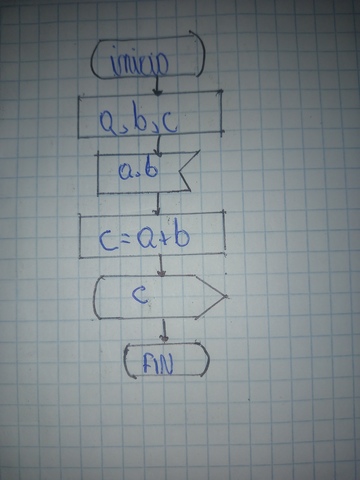 inicio
a,b,c
a,b
c=a+b
c
FIN